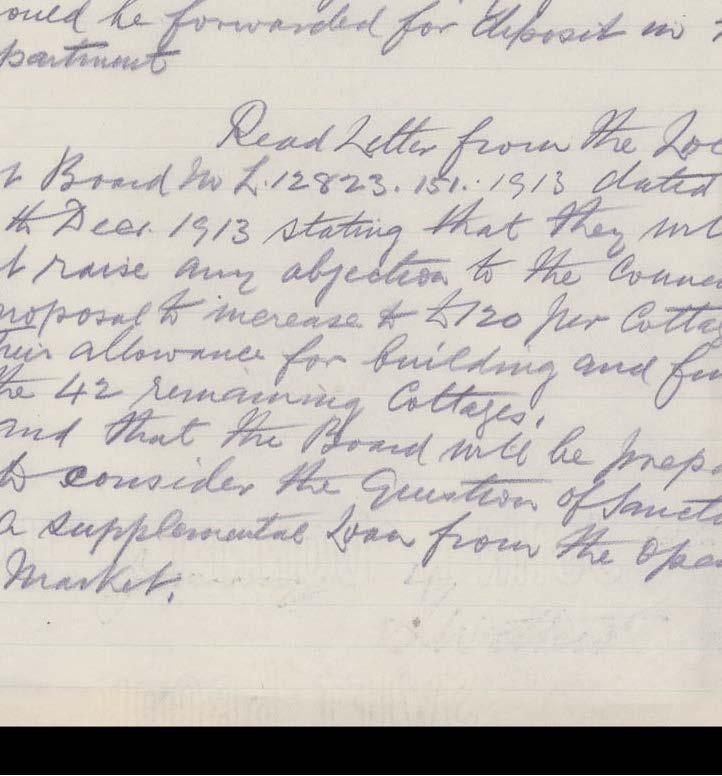 ould be forwarded for deposit in
partment
Read Letter from the Loc
t Board No L.12823.151.1913 dated
th Decr. 1913 stating that they will
t raise any objection to the Counc
roposal to increase to £120 per Cotta
heir allowance for building and f
the 42 remaining Cottages.
and that the Board will be prep
to consider the Question of Sanct
a supplemental Loan from the Open
Market.